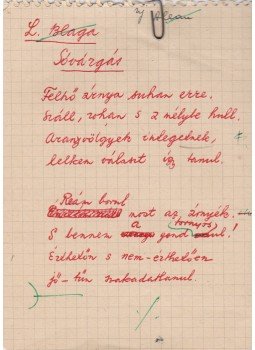 L. Blaga
Sóvárgás
Felhő árnya suhan erre.
Száll, rohan s a mélybe hull.
Aranyvölgyek integetnek,
lelkem választ így tanul.
Reám borul most az árnyék.
S bennem a gond tornyosul!
Érthetőn s nem-érthetően
jő-tűn szakadatlanul.